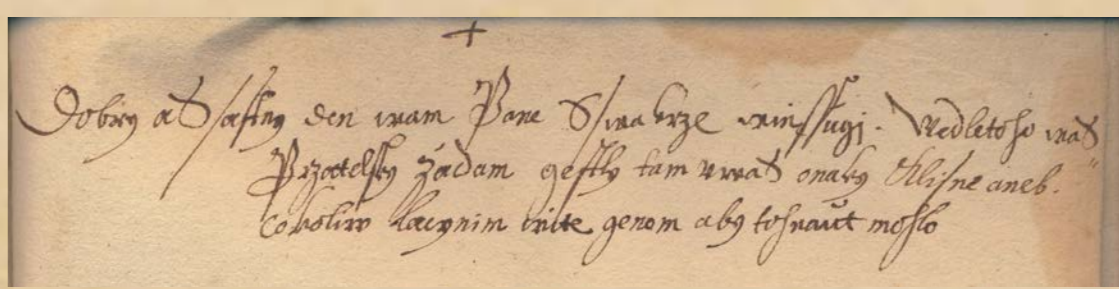 Dobry a Sstiastny den wam Pane Sswakrze winssugi. Wedletoho was
Przatelsky žadam gestly tam vwas onaky Klisne aneb
cokoliw lacynim wite genom aby tohnaut mohlo